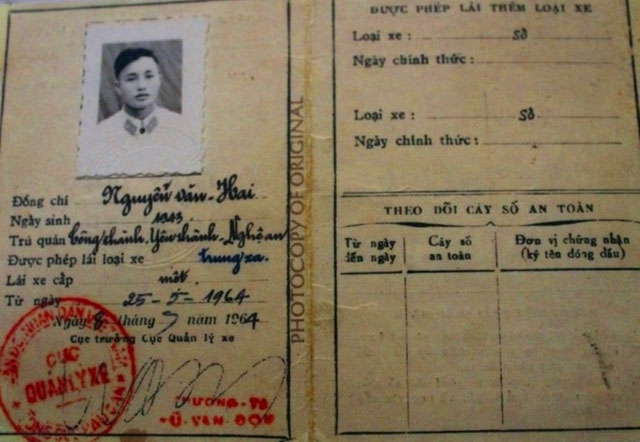 Đồng chí Nguyễn văn-Hai
Ngày sinh 1943
Trú quán Công thành, Yên thành-Nghệ an
Được phép lái loại xe trung xa.
Lái xe cấp một
Từ ngày 25-5-1964
Ngày 8 tháng 7 năm 1964
Cục trưởng Cục Quản lý xe
CỤC
QUẢN LÝ XE
PHOTOCOPY OF ORIGINAL
ĐƯỢC PHÉP LÁI THÊM LOẠI XE
Loại xe : Số
Ngày chính thức :
Loại xe : Số
Ngày chính thức :
THEO DÕI CÂY SỐ AN TOÀN
Từ ngày
đến ngày
Cây số
an toàn
Đơn vị chứng nhận
(ký tên đóng dấu)